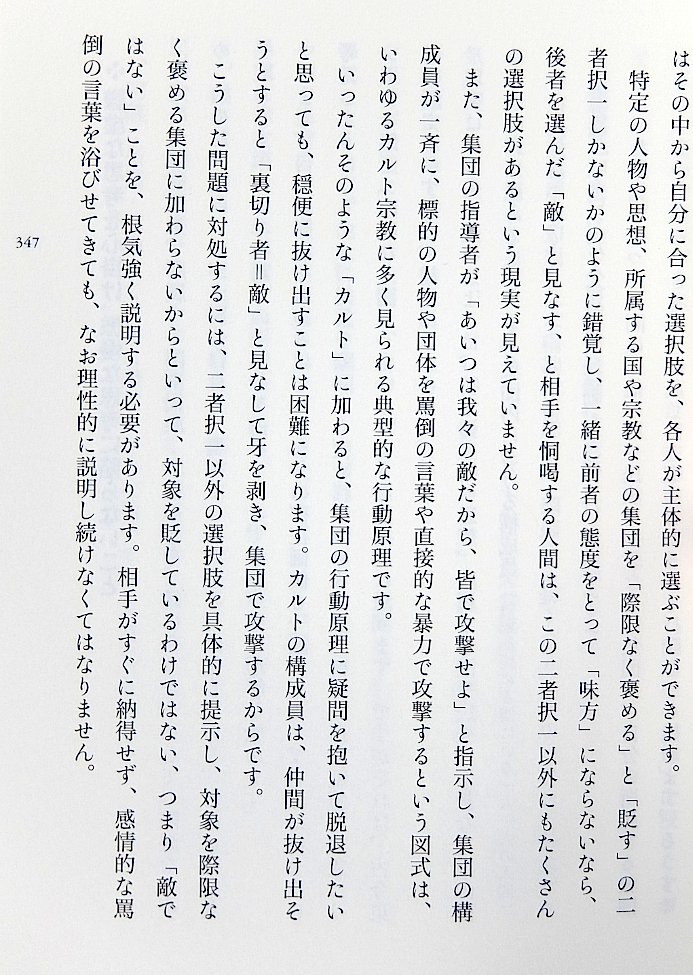 はその中から自分に合った選択肢を、各人が主体的に選ぶことができます。
特定の人物や思想、所属する国や宗教などの集団を「際限なく褒める」と「貶す」の二
者択一しかないかのように錯覚し、一緒に前者の態度をとって「味方」にならないなら、
後者を選んだ「敵」と見なす、と相手を恫喝する人間は、この二者択一以外にもたくさん
の選択肢があるという現実が見えていません。
また、集団の指導者が「あいつは我々の敵だから、皆で攻撃せよ」と指示し、集団の構
成員が一斉に、標的の人物や団体を罵倒の言葉や直接的な暴力で攻撃するという図式は、
いわゆるカルト宗教に多く見られる典型的な行動原理です。
いったんそのような「カルト」に加わると、集団の行動原理に疑問を抱いて脱退したい
と思っても、穏便に抜け出すことは困難になります。カルトの構成員は、仲間が抜け出そ
うとすると「裏切り者＝敵」と見なして牙を剥き、集団で攻撃するからです。
こうした問題に対処するには、二者択一以外の選択肢を具体的に提示し、対象を際限な
く褒める集団に加わらないからといって、対象を貶しているわけではない、つまり「敵で
はない」ことを、根気強く説明する必要があります。相手がすぐに納得せず、感情的な罵
倒の言葉を浴びせてきても、なお理性的に説明し続けなくてはなりません。
347